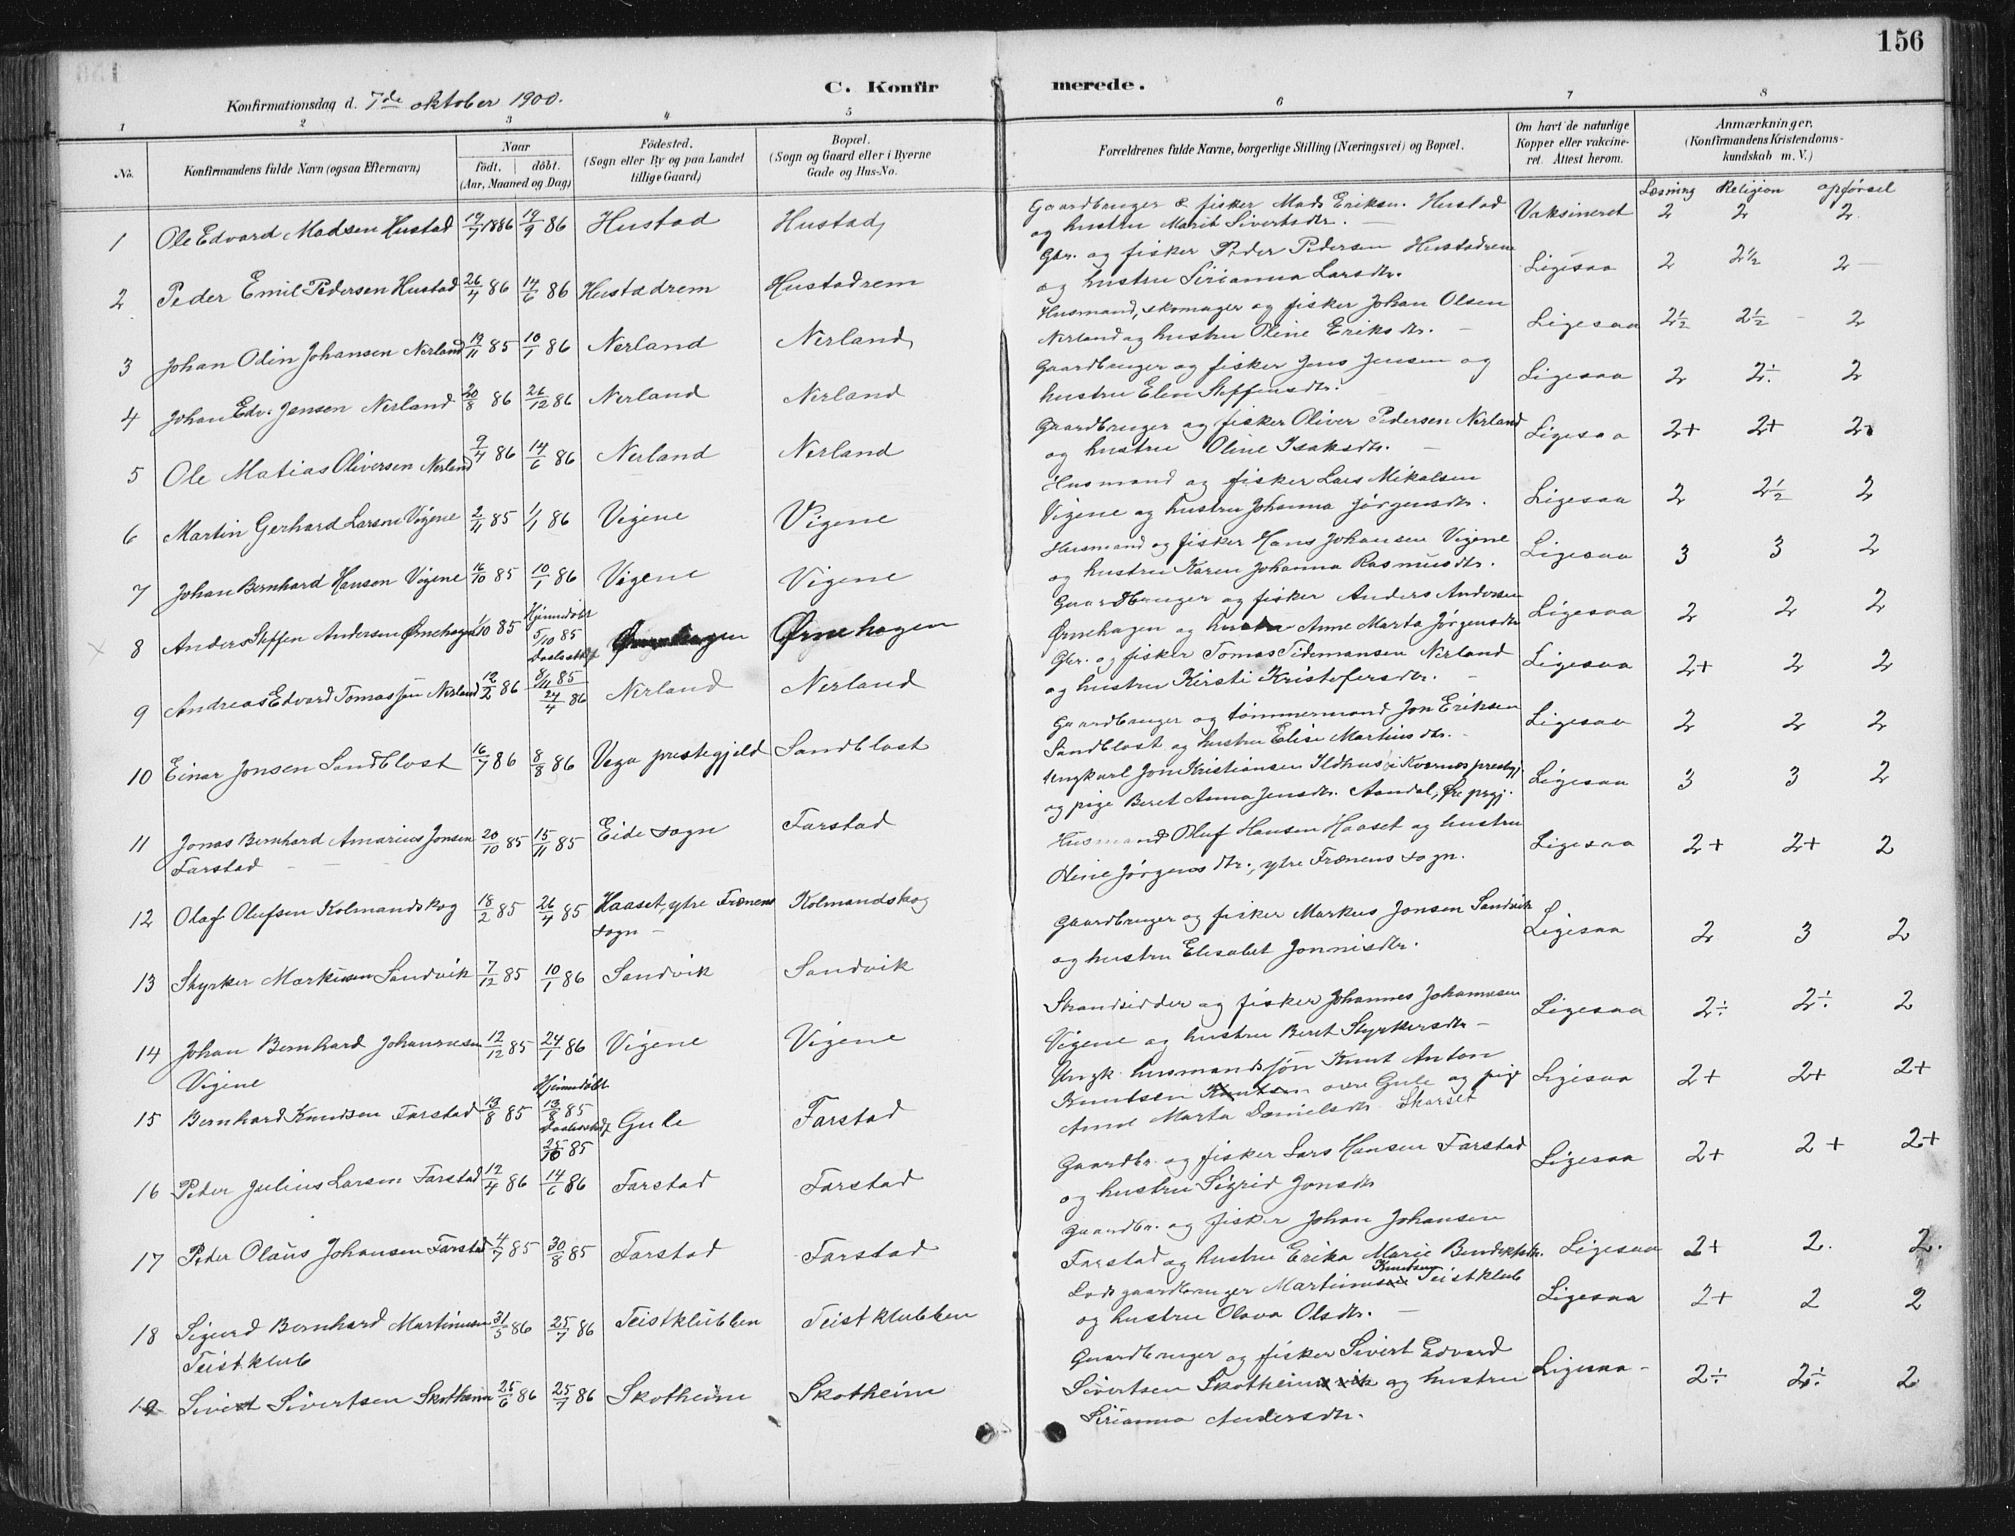 156
C. Konfirmerede.
Konfirmationsdag d. 7de oktober 1900.
1 2 3 4 5 6 7 8
No.
Konfirmandens fulde Navn (ogsaa Efternavn)
Naar
födt. döbt.
(Aar, Maaned og Dag)
Födested.
(Sogn eller By og paa Landet
tillige Gaard)
Bopæl.
(Sogn og Gaard eller i Byerne
Gade og Hus-No.
Forældrenes fulde Navne, borgerlige Stilling (Næringsvei) og Bopæl.
Om havt de naturlige
Kopper eller vakcine-
ret. Attest herom.
Anmærkninger.
(Konfirmandens Kristendoms-
kundskab m. V.)
Læsning Religion opførsel
1 Ole Edvard Madsen Hustad 19/7 1886 19/9 86 Hustad Hustad Gaardbruger & fisker Mads Eriksen Hustad Vaksineret 2 2 2
og hustru Marit Sivertsdtr.
2 Peder Emil Pedersen Hustad 26/4 86 14/6 86 Hustadrem Hustadrem Gbr. og fisker Peder Pedersen Hustadrem Ligesaa 2 2½ 2
og hustru Sirianna Larsdtr.
3 Johan Odin Johansen Nerland 19/11 85 10/1 86 Nerland Nerland Husmand, skomager og fisker Johan Olsen Ligesaa 2½ 2½ 2
Nerland og hustru Oline Eriksdtr.
4 Johan Edv. Jensen Nerland 20/8 86 26/12 86 Nerland Nerland Gaardbruger og fisker Jens Jensen og Ligesaa 2 2÷ 2
hustru Elen Steffensdtr.
5 Ole Matias Oliversen Nerland 9/4 86 14/6 86 Nerland Nerland Gaardbruger og fisker Oliver Pedersen Nerland Ligesaa 2+ 2+ 2+
og hustru Oline Isaksdtr.
6 Martin Gerhard Larsen Vigene 2/11 85 1/1 86 Vigene Vigene Husmand og fisker Lars Mikalsen Ligesaa 2 2½ 2
Vigene og hustru Johanna Jørgensdtr.
7 Johan Bernhard Hansen Vigene 16/10 85 10/1 86 Vigene Vigene Husmand og fisker Hans Johansen Vigene Ligesaa 3 3 2
og hustru Karen Johanna Rasmusdtr.
× 8 Anders Steffen Andersen Ørnehagen 1/10 85 Hjemmedøbt 5/10 85 Ørnehagen Ørnehagen Gaardbruger og fisker Anders Andersen Ligesaa 2 2 2
Daabsstadf. 8/11 85 Ørnehagen og hustru Anne Marta Jørgensdtr
9 Andreas Edvard Tomassen Nerland 12/2 86 24/4 86 Nerland Nerland Gbr. og fisker Tomas Tidemansen Nerland Ligesaa 2+ 2 2
og hustru Kirsti Kristofersdtr.
10 Einar Jonsen Sandblost 16/7 86 8/8 86 Vega prestegjeld Sandblost Gaardbruger og tømmermand Jon Eriksen Ligesaa 2 2 2
Sandblost og hustru Elise Martinusdtr.
11 Jonas Bernhard Amarius Jonsen 20/10 85 15/11 85 Eide sogn Farstad Ungkarl Jon Kristiansen Ildhus i Kvernes prestgj. Ligesaa 3 3 2
Farstad og pige Beret Anna Jensdtr. Aandal, Øre prgj.
12 Olaf Olufsen Kolmandskog 18/2 85 26/4 85 Haaset, ytre Frænens Kolmandskog Husmand Oluf Hansen Haaset og hustru Ligesaa 2+ 2+ 2
sogn Oline Jørgensdtr., ytre Frænens sogn.
13 Styrker Markussen Sandvik 7/12 85 10/1 86 Sandvik Sandvik Gaardbruger og fisker Markus Jonsen Sandvik Ligesaa 2 3 2
og hustru Elisabet Jonnisdtr.
14 Johan Bernhard Johannesen 12/12 85 24/1 86 Vigene Vigene Strandsidder og fisker Johannes Johannesen Ligesaa 2÷ 2÷ 2
Vigene Vigene og hustru Beret Styrkersdtr
15 Bernhard Knudsen Farstad 13/8 85 Hjemmedøbt 13/8 85 Gule Farstad Ungk. husmandssøn Knut Anton Ligesaa 2+ 2+ 2+
Daabsstadf. 25/10 85 Knutsen Knutsen øvre Gule og pige
Anne Marta Danielsdtr. Skarset
16 Peter Julius Larsen Farstad 12/4 86 14/6 86 Farstad Farstad Gaardbr. og fisker Lars Hansen Farstad Ligesaa 2+ 2+ 2+
og hustru Sigrid Jonsdtr
17 Peder Olaus Johansen Farstad 4/7 85 30/8 85 Farstad Farstad Gaardbr. og fisker Johan Johansen Ligesaa 2+ 2. 2.
Farstad og hustru Erika Marie Bendiksdtr.
18 Sigurd Bernhard Martinusen 31/5 86 25/7 86 Teistklubben Teistklubben Lods gaardbruger Martinus Knutsen Teistklub Ligesaa 2+ 2 2
Teistklub og hustru Olava Olsdtr.
19 Sivert Sivertsen Skotheim 25/6 86 25/7 86 Skotheim Skotheim Gaardbruger og fisker Sivert Edvard Ligesaa 2÷ 2÷ 2
Sivertsen Skotheim og hustru
Sirianna Andersdtr.